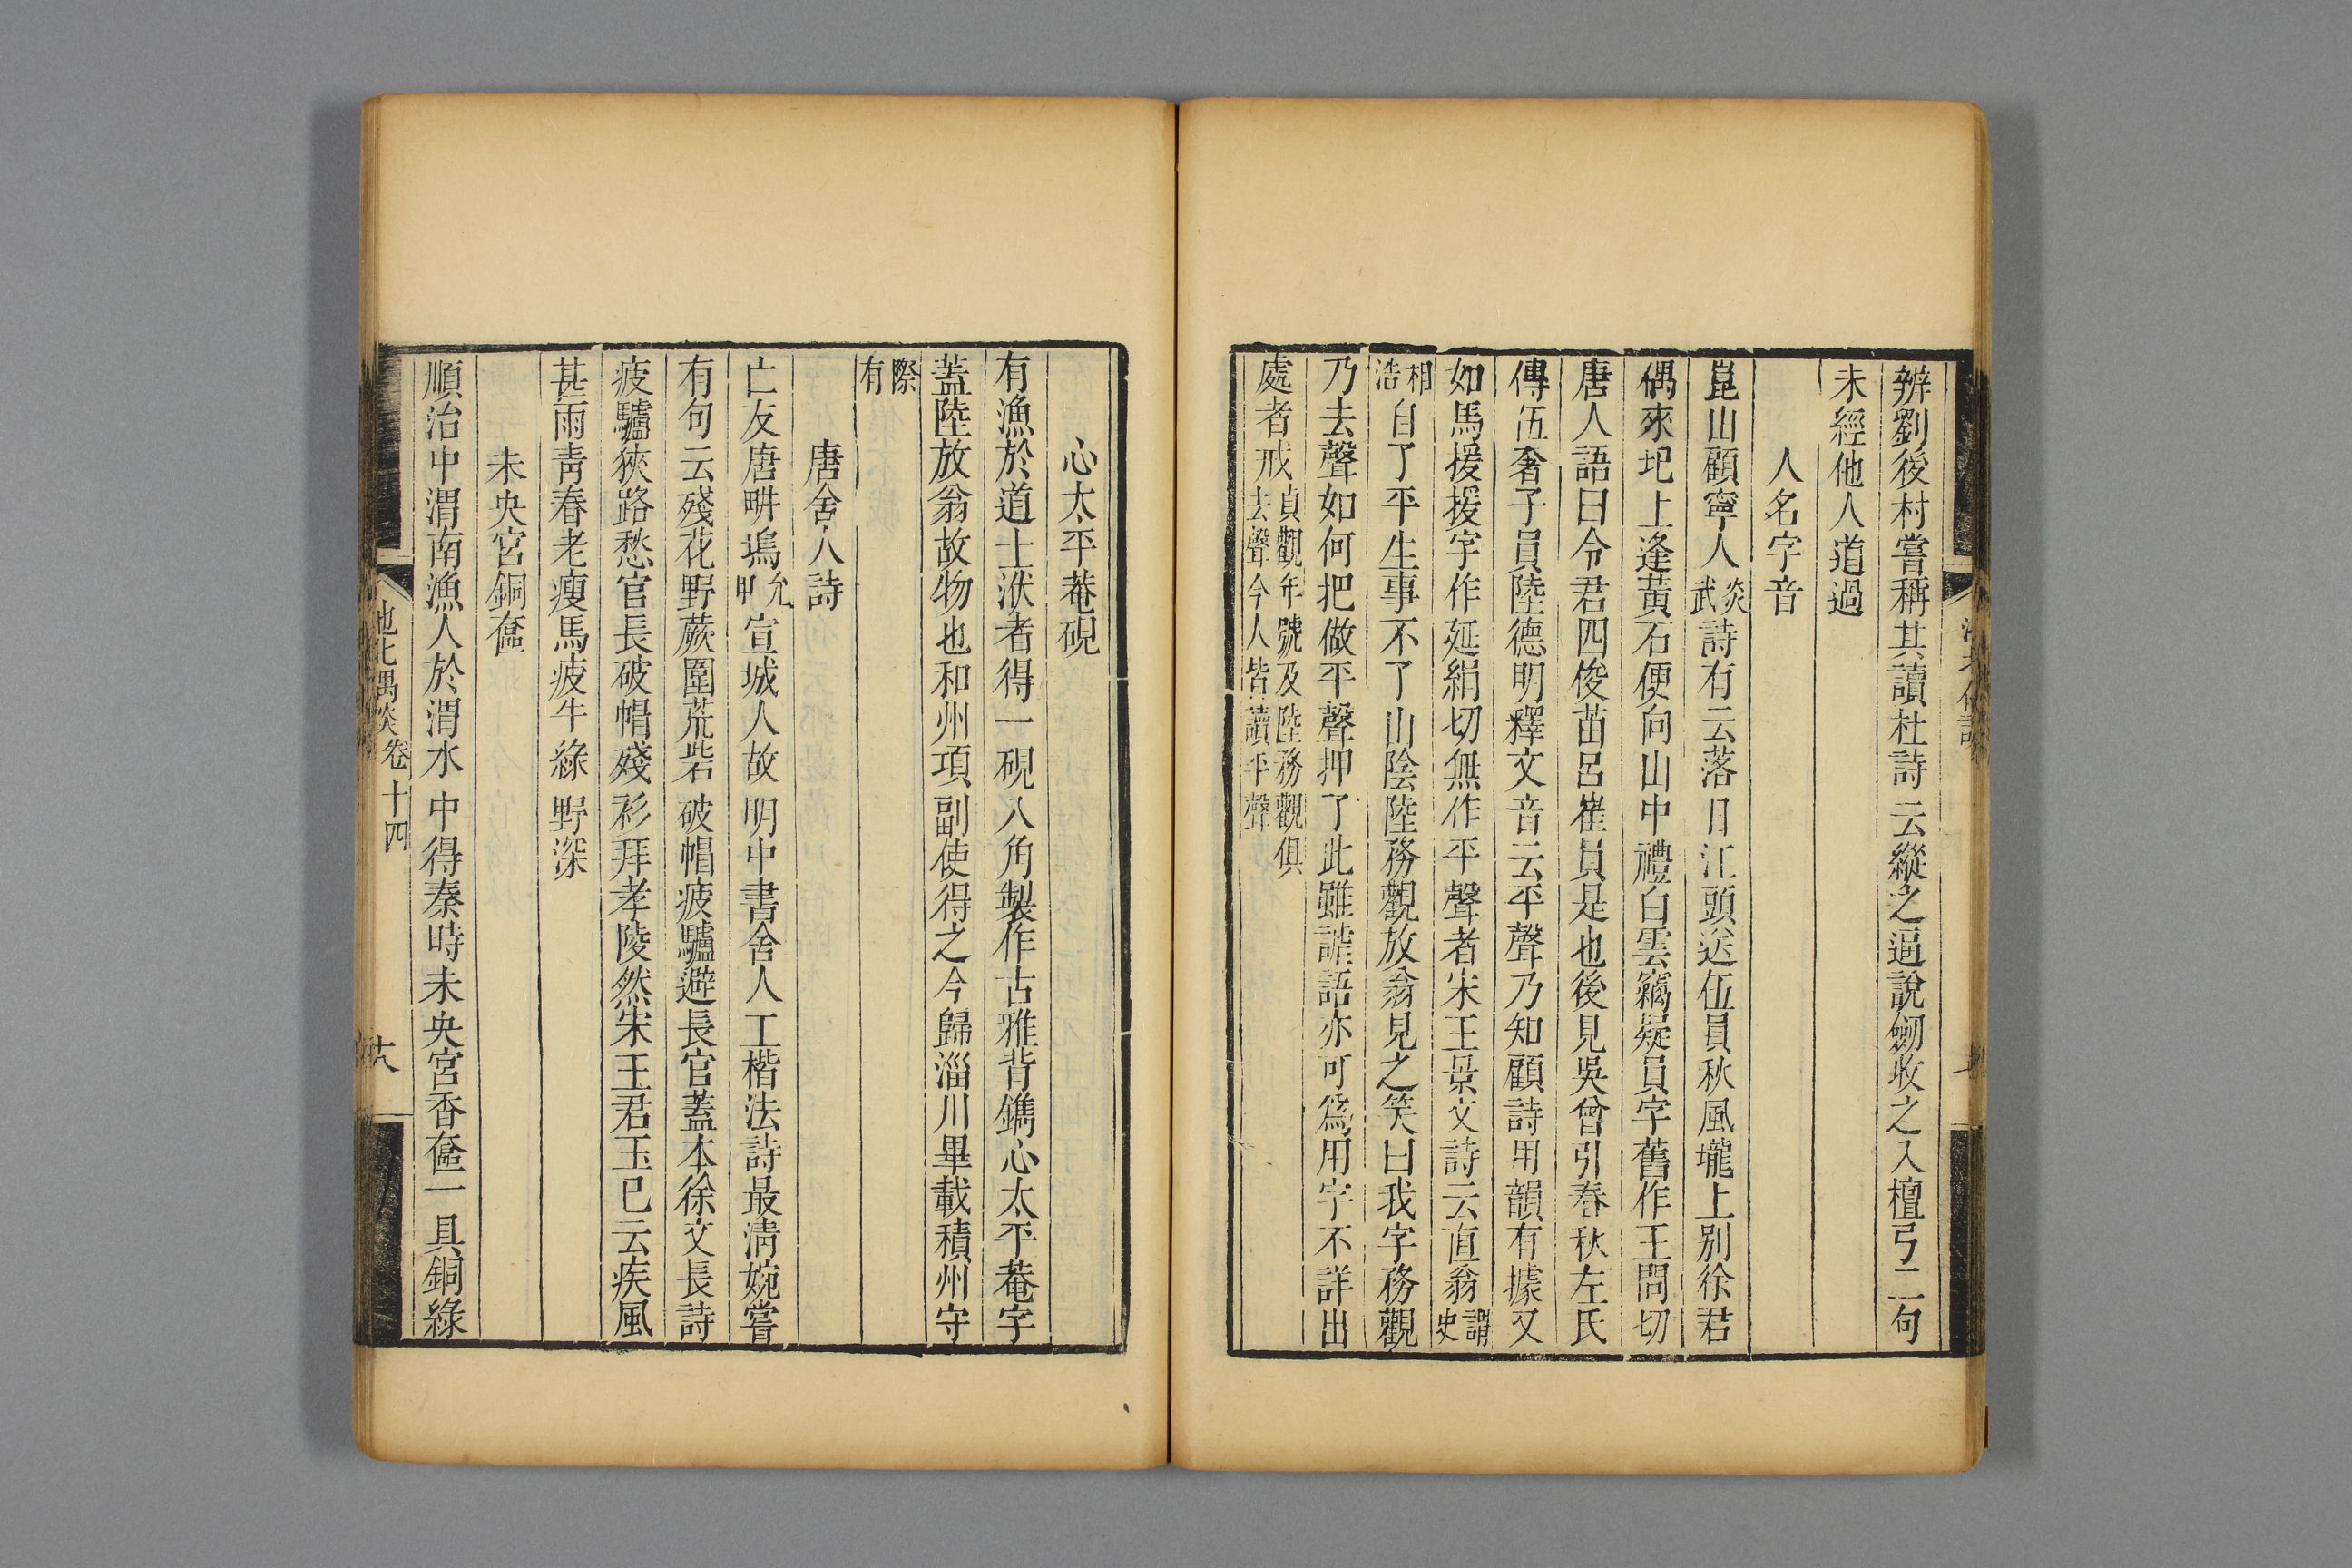 辨劉後村嘗稱其讀杜詩云縱之逼說劒收之入檀弓二句
未經他人道過
人名字音
崑山顧寧人炎武詩有云落日江頭送伍員秋風壠上别徐君
偶來圯上逢黃石便向山中禮白雲竊疑員字舊作王問切
唐人語曰令君四俊苗呂崔員是也後見吳曾引春秋左氏
傳伍奢子員陸德明釋文音云平聲乃知顧詩用韻有據又
如馬援援字作延絹切無作平聲者宋王景文詩云直翁謂史
相浩自了平生事不了山陰陸務觀放翁見之笑曰我字務觀
乃去聲如何把做平聲押了此雖謔語亦可爲用字不詳出
處者戒貞觀年號及陸務觀俱去聲今人皆讀平聲
心太平菴硯
有漁於道士洑者得一硯八角製作古雅背鐫心太平菴字
蓋陸放翁故物也和州項副使得之今歸淄川畢載積州守
際有
唐舍人詩
亡友唐畊塢允甲宣城人故明中書舍人工楷法詩最淸婉嘗
有句云殘花野蕨圍荒砦破帽疲驢避長官蓋本徐文長詩
疲驢狹路愁官長破帽殘衫拜孝陵然宋王君玉已云疾風
甚雨靑春老瘦馬疲牛綠野深
未央宮銅奩
順治中渭南漁人於渭水中得秦時未央宮香奩一具銅綠
池北偶談卷十四